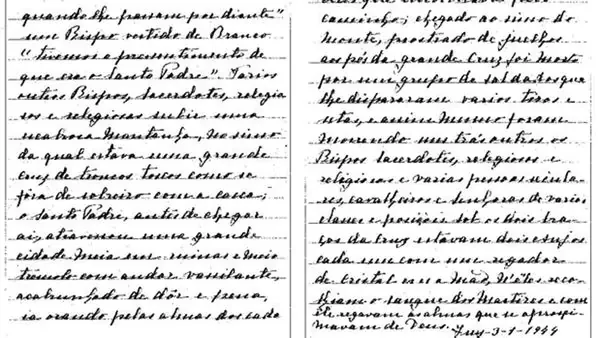 quando lhe passam por diante"
um Bispo vestido de Branco
"tivemos o pressentimento de
que era o Santo Padre". Varios
outros Bispos, Sacerdotes, religio
sos e religiosas subir uma
escabrosa montanha, no simo
da qual estava uma grande
Cruz de troncos toscos como se
fôra de sobreiro com a casca;
o Santo Padre, antes de chegar
aí, atravessou uma grande
cidade meia em ruinas e meio
trémulo com andar vacilante,
acabrunhado de dôr e pena,
ia orando pelas almas dos cada
que encontrava pelo
caminho; chegado ao simo do
monte, prostrado de juelhos
aos pés da grande Cruz foi morto
por um grupo de soldados que
lhe dispararam varios tiros e
setas, e assim mesmo foram
morrendo uns trás outros os
Bispos Sacerdotes, religiosos e
religiosas e varias pessoas secula-
res, cavalheiros e senhoras de varias
classes e posições. Sob os dois bra-
ços da Cruz estavam dois Anjos
cada um com um regador
de cristal em a mão, nêles reco-
lhiam o sangue dos Martires e com
ele regavam as almas que se aproxi-
mavam de Deus. Tuy-3-1-1944